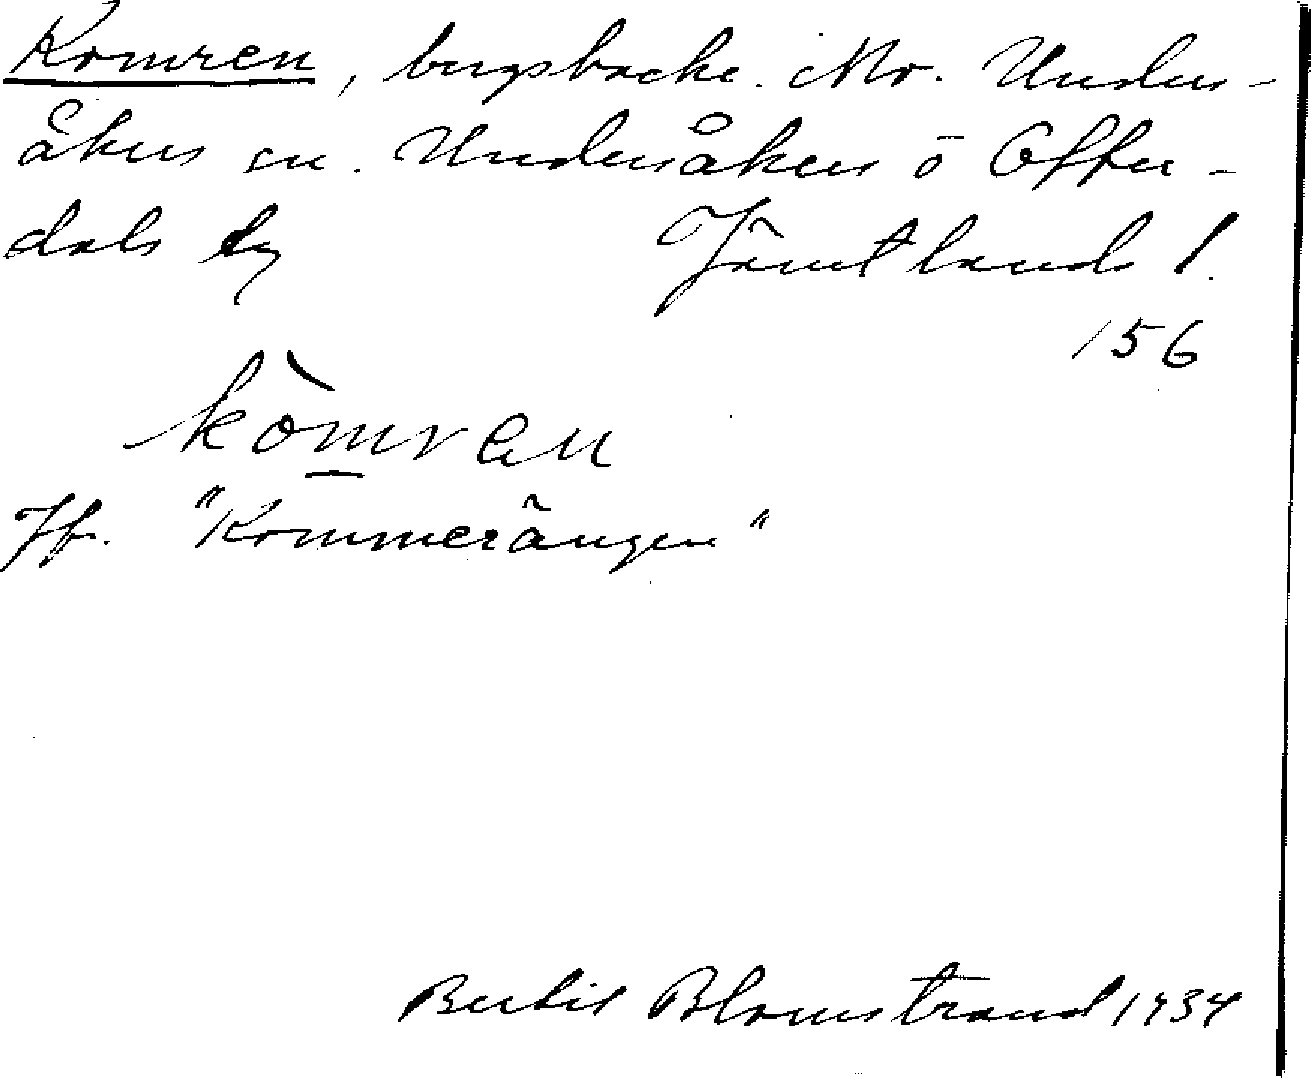 Komren, bergsbacke. Mo. Unders-
åkers sn. Undersåkers o Offer-
dals tg Jämtland l.
156
kòmren
Jfr. "Kommerängen"
Bertil Blomstrand 1934